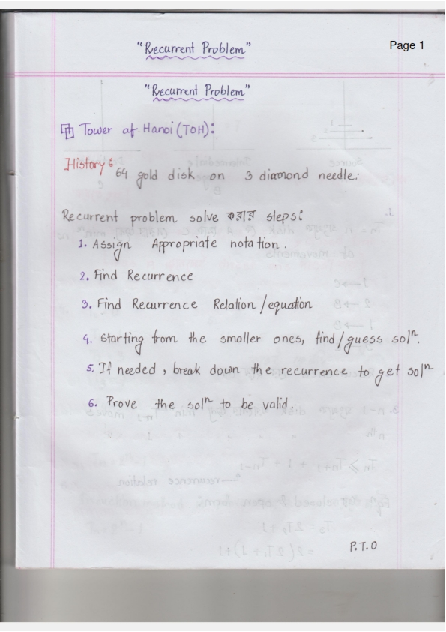 "Recurrent Problem"
Page 1
"Recurrent Problem"
Tower of Hanoi (TOH):
History:
64 gold disk on 3 diamond needle.
Recurrent problem solve করার steps:
1. Assign Appropriate notation.
2. Find Recurrence
3. Find Recurrence Relation/equation
4. Starting from the smaller ones, find/guess solⁿ.
5. If needed, break down the recurrence to get solⁿ.
6. Prove the solⁿ to be valid.
P.T.O